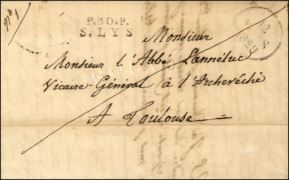 P.30.P.
S. LYS
Monsieur
Monsieur l'Abbé Lannéluc
Vicaire-Général à l'Archevêché
A Toulouse